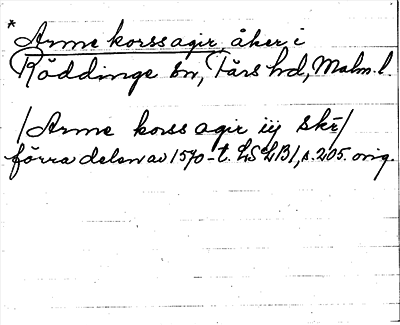 * Arme korssagir, åker i
Röddinge sn, Färs hd, Malm. l.
/Arme korss agir iij skr/
förra delen av 1570-t. LSLB1, s. 205. orig.